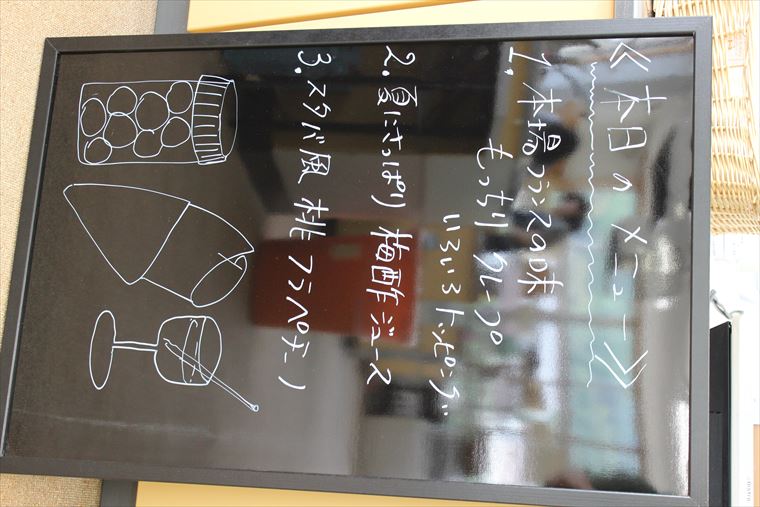 ≪本日のメニュー≫
1. 本場フランスの味
もっちりクレープ
いろいろトッピング
2. 夏にさっぱり 梅酢ジュース
3. スタバ風 桃フラペチーノ